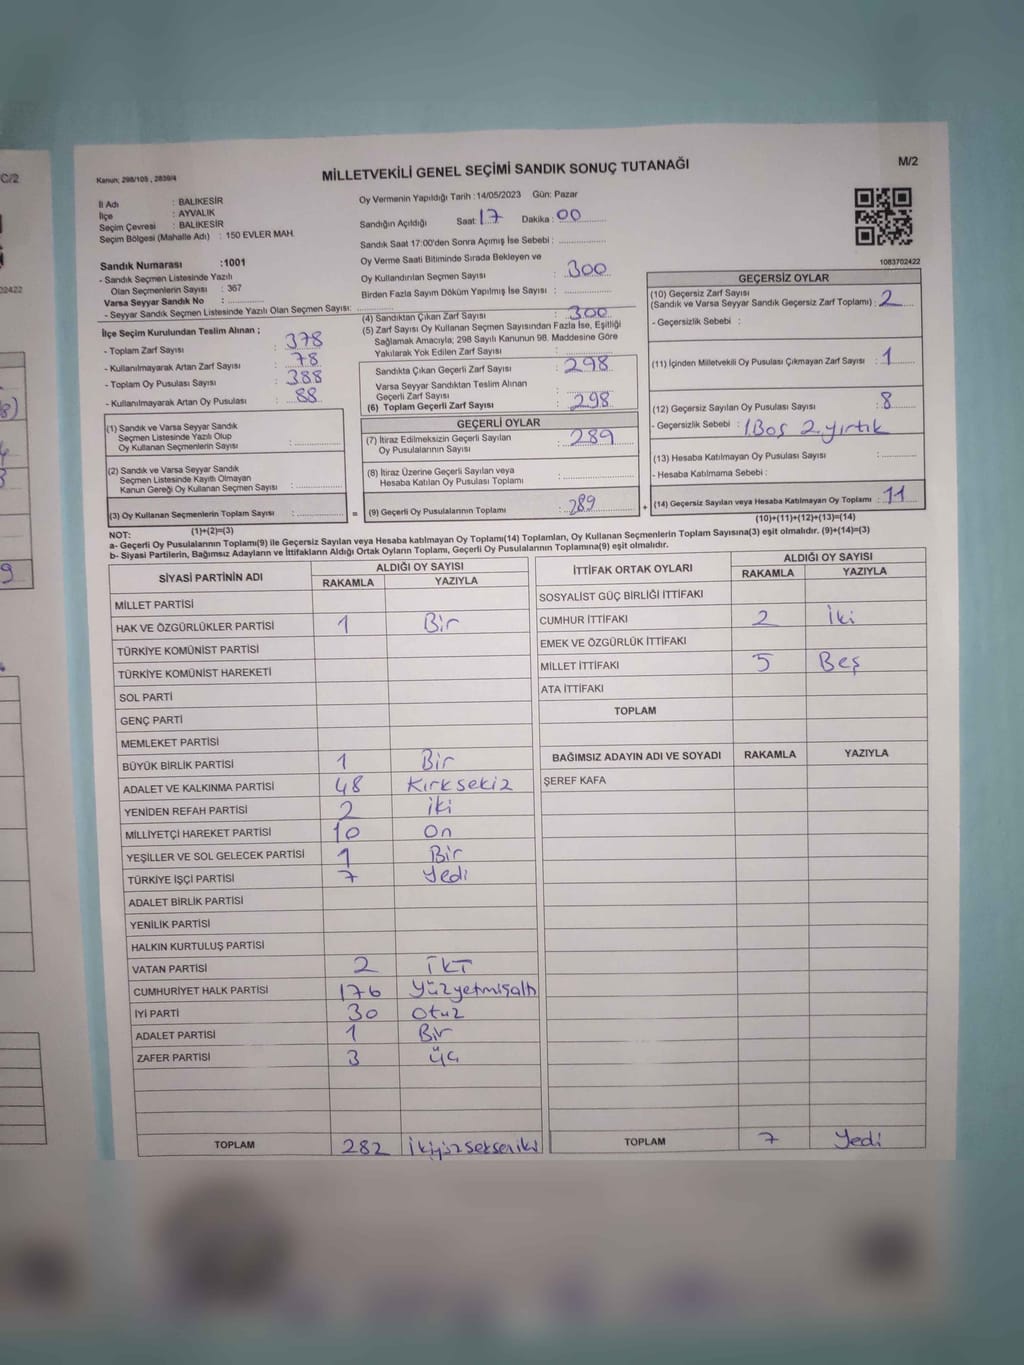 C/2
Kanun: 298/105 , 2839/4
MİLLETVEKİLİ GENEL SEÇİMİ SANDIK SONUÇ TUTANAĞI
M/2
İl Adı : BALIKESİR
İlçe : AYVALIK
Seçim Çevresi : BALIKESİR
Seçim Bölgesi (Mahalle Adı) : 150 EVLER MAH.
Sandık Numarası :1001
- Sandık Seçmen Listesinde Yazılı
Olan Seçmenlerin Sayısı : 367
Varsa Seyyar Sandık No :
- Seyyar Sandık Seçmen Listesinde Yazılı Olan Seçmen Sayısı:
İlçe Seçim Kurulundan Teslim Alınan ;
- Toplam Zarf Sayısı : 378
- Kullanılmayarak Artan Zarf Sayısı : 78
- Toplam Oy Pusulası Sayısı : 388
- Kullanılmayarak Artan Oy Pusulası : 88
(1) Sandık ve Varsa Seyyar Sandık
Seçmen Listesinde Yazılı Olup
Oy Kullanan Seçmenlerin Sayısı :
(2) Sandık ve Varsa Seyyar Sandık
Seçmen Listesinde Kayıtlı Olmayan
Kanun Gereği Oy Kullanan Seçmen Sayısı :
(3) Oy Kullanan Seçmenlerin Toplam Sayısı :
(1)+(2)=(3)
Oy Vermenin Yapıldığı Tarih : 14/05/2023 Gün: Pazar
Sandığın Açıldığı Saat: 17 Dakika : 00
Sandık Saat 17:00'den Sonra Açımış İse Sebebi :
Oy Verme Saati Bitiminde Sırada Bekleyen ve
Oy Kullandırılan Seçmen Sayısı : 300
Birden Fazla Sayım Döküm Yapılmış İse Sayısı :
(4) Sandıktan Çıkan Zarf Sayısı : 300
(5) Zarf Sayısı Oy Kullanan Seçmen Sayısından Fazla İse, Eşitliği
Sağlamak Amacıyla; 298 Sayılı Kanunun 98. Maddesine Göre
Yakılarak Yok Edilen Zarf Sayısı :
Sandıkta Çıkan Geçerli Zarf Sayısı : 298
Varsa Seyyar Sandıktan Teslim Alınan
Geçerli Zarf Sayısı :
(6) Toplam Geçerli Zarf Sayısı : 298
GEÇERLİ OYLAR
(7) İtiraz Edilmeksizin Geçerli Sayılan
Oy Pusulalarının Sayısı : 289
(8) İtiraz Üzerine Geçerli Sayılan veya
Hesaba Katılan Oy Pusulası Toplamı :
= (9) Geçerli Oy Pusulalarının Toplamı : 289 +
1083702422
GEÇERSİZ OYLAR
(10) Geçersiz Zarf Sayısı
(Sandık ve Varsa Seyyar Sandık Geçersiz Zarf Toplamı) : 2
- Geçersizlik Sebebi :
(11) İçinden Milletvekili Oy Pusulası Çıkmayan Zarf Sayısı : 1
(12) Geçersiz Sayılan Oy Pusulası Sayısı : 8
- Geçersizlik Sebebi : 1 Boş 2 yırtık
(13) Hesaba Katılmayan Oy Pusulası Sayısı :
- Hesaba Katılmama Sebebi :
(14) Geçersiz Sayılan veya Hesaba Katılmayan Oy Toplamı : 11
(10)+(11)+(12)+(13)=(14)
NOT:
a- Geçerli Oy Pusulasının Toplamı(9) ile Geçersiz Sayılan veya Hesaba katılmayan Oy Toplamı(14) Toplamları, Oy Kullanan Seçmenlerin Toplam Sayısına(3) eşit olmalıdır. (9)+(14)=(3)
b- Siyasi Partilerin, Bağımsız Adayların ve İttifakların Aldığı Ortak Oyların Toplamı, Geçerli Oy Pusulalarının Toplamına(9) eşit olmalıdır.
SİYASİ PARTİNİN ADI ALDIĞI OY SAYISI
RAKAMLA YAZIYLA
MİLLET PARTİSİ
HAK VE ÖZGÜRLÜKLER PARTİSİ 1 Bir
TÜRKİYE KOMÜNİST PARTİSİ
TÜRKİYE KOMÜNİST HAREKETİ
SOL PARTİ
GENÇ PARTİ
MEMLEKET PARTİSİ
BÜYÜK BİRLİK PARTİSİ 1 Bir
ADALET VE KALKINMA PARTİSİ 48 Kırksekiz
YENİDEN REFAH PARTİSİ 2 iki
MİLLİYETÇİ HAREKET PARTİSİ 10 On
YEŞİLLER VE SOL GELECEK PARTİSİ 1 Bir
TÜRKİYE İŞÇİ PARTİSİ 7 Yedi
ADALET BİRLİK PARTİSİ
YENİLİK PARTİSİ
HALKIN KURTULUŞ PARTİSİ
VATAN PARTİSİ 2 İKİ
CUMHURİYET HALK PARTİSİ 176 Yüzyetmişaltı
İYİ PARTİ 30 Otuz
ADALET PARTİSİ 1 Bir
ZAFER PARTİSİ 3 Üç
TOPLAM 282 İkiyüzsekseniki
İTTİFAK ORTAK OYLARI ALDIĞI OY SAYISI
RAKAMLA YAZIYLA
SOSYALİST GÜÇ BİRLİĞİ İTTİFAKI
CUMHUR İTTİFAKI 2 İki
EMEK VE ÖZGÜRLÜK İTTİFAKI
MİLLET İTTİFAKI 5 Beş
ATA İTTİFAKI
TOPLAM
BAĞIMSIZ ADAYIN ADI VE SOYADI RAKAMLA YAZIYLA
ŞEREF KAFA
TOPLAM 7 Yedi